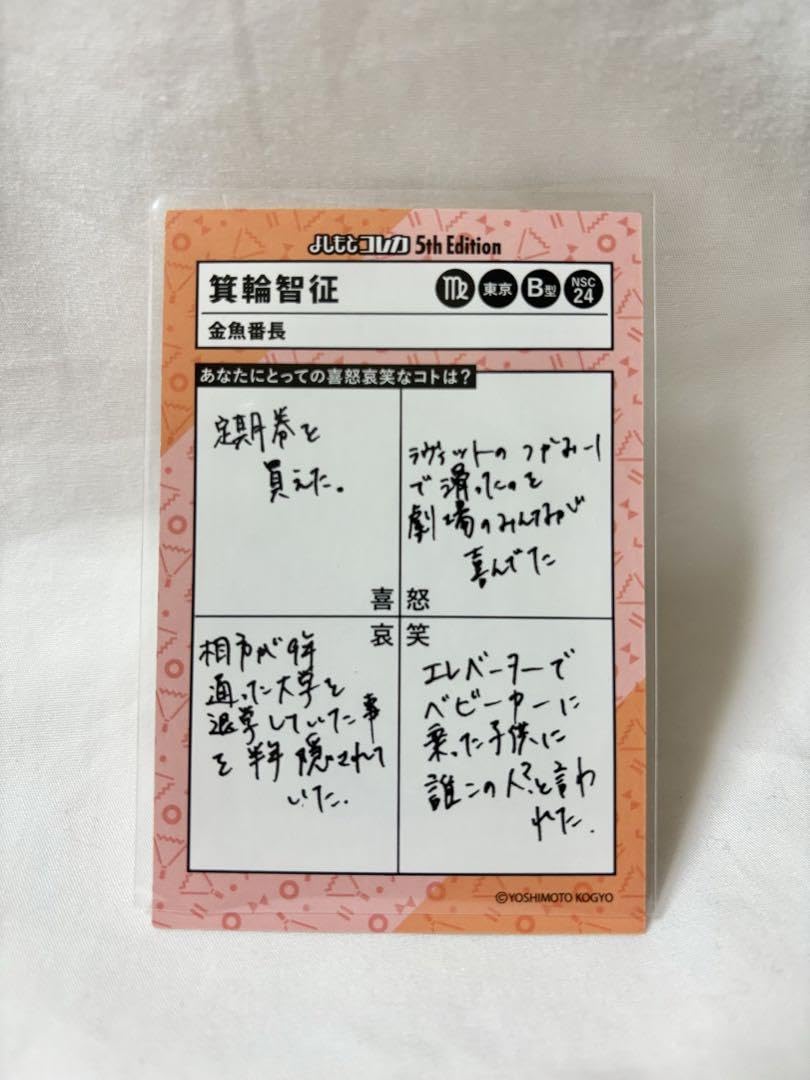 よしもとコレカ 5th Edition
箕輪智征
♍ 東京 B型 NSC 24
金魚番長
あなたにとっての喜怒哀笑なコトは？
定期券を
買えた。
喜
ラヴィットの つかみー1
で滑ったのを
劇場のみんなが
喜んでた
怒
哀
相方が9年
通った大学を
退学していた事
を半年隠されて
いた.
笑
エレベーターで
ベビーカーに
乗った子供に
誰この人?と言わ
れた.
©YOSHIMOTO KOGYO